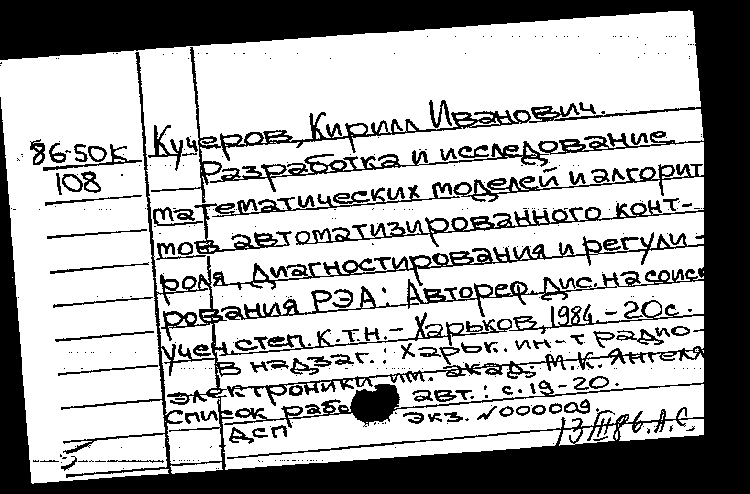 86-50К
108
Кучеров, Кирилл Иванович.
Разработка и исследование
математических моделей и алгорит
мов автоматизированного конт-
роля, диагностирования и регули-
рования РЭА: Автореф. дис. на соиск
учен. степ. к.т.н. - Харьков, 1984. - 20с.
В надзаг.: Харьк. ин-т радио-
электроники им. акад. М.К. Янгеля
Список рабо авт.: с.19-20.
ДСП экз. №000009.
13 III 86. А.С.
5